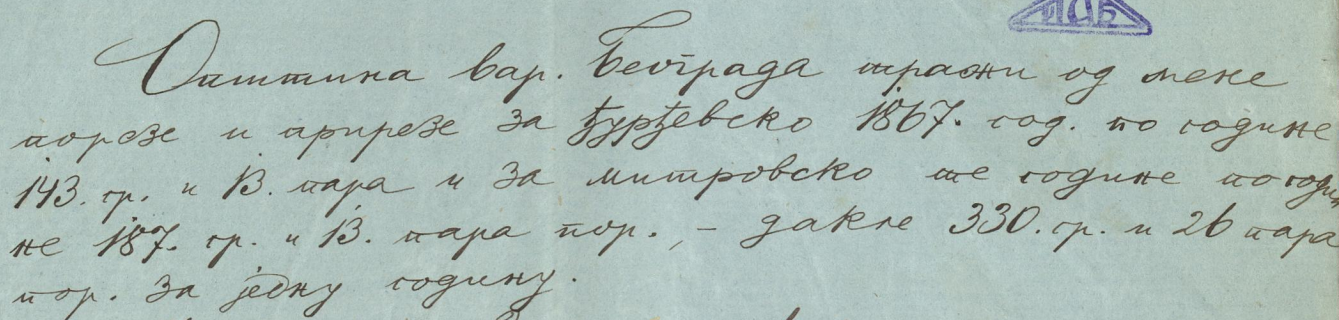 ИАБ
Општина вар. Београда тражи од мене
порезе и прирезе за ђурђевско 1867. год. по године
143. гр. и 13. пара и за митровско те године по годи
не 187. гр. и 13. пара пор., – дакле 330. гр. и 26 пара
пор. за једну годину.